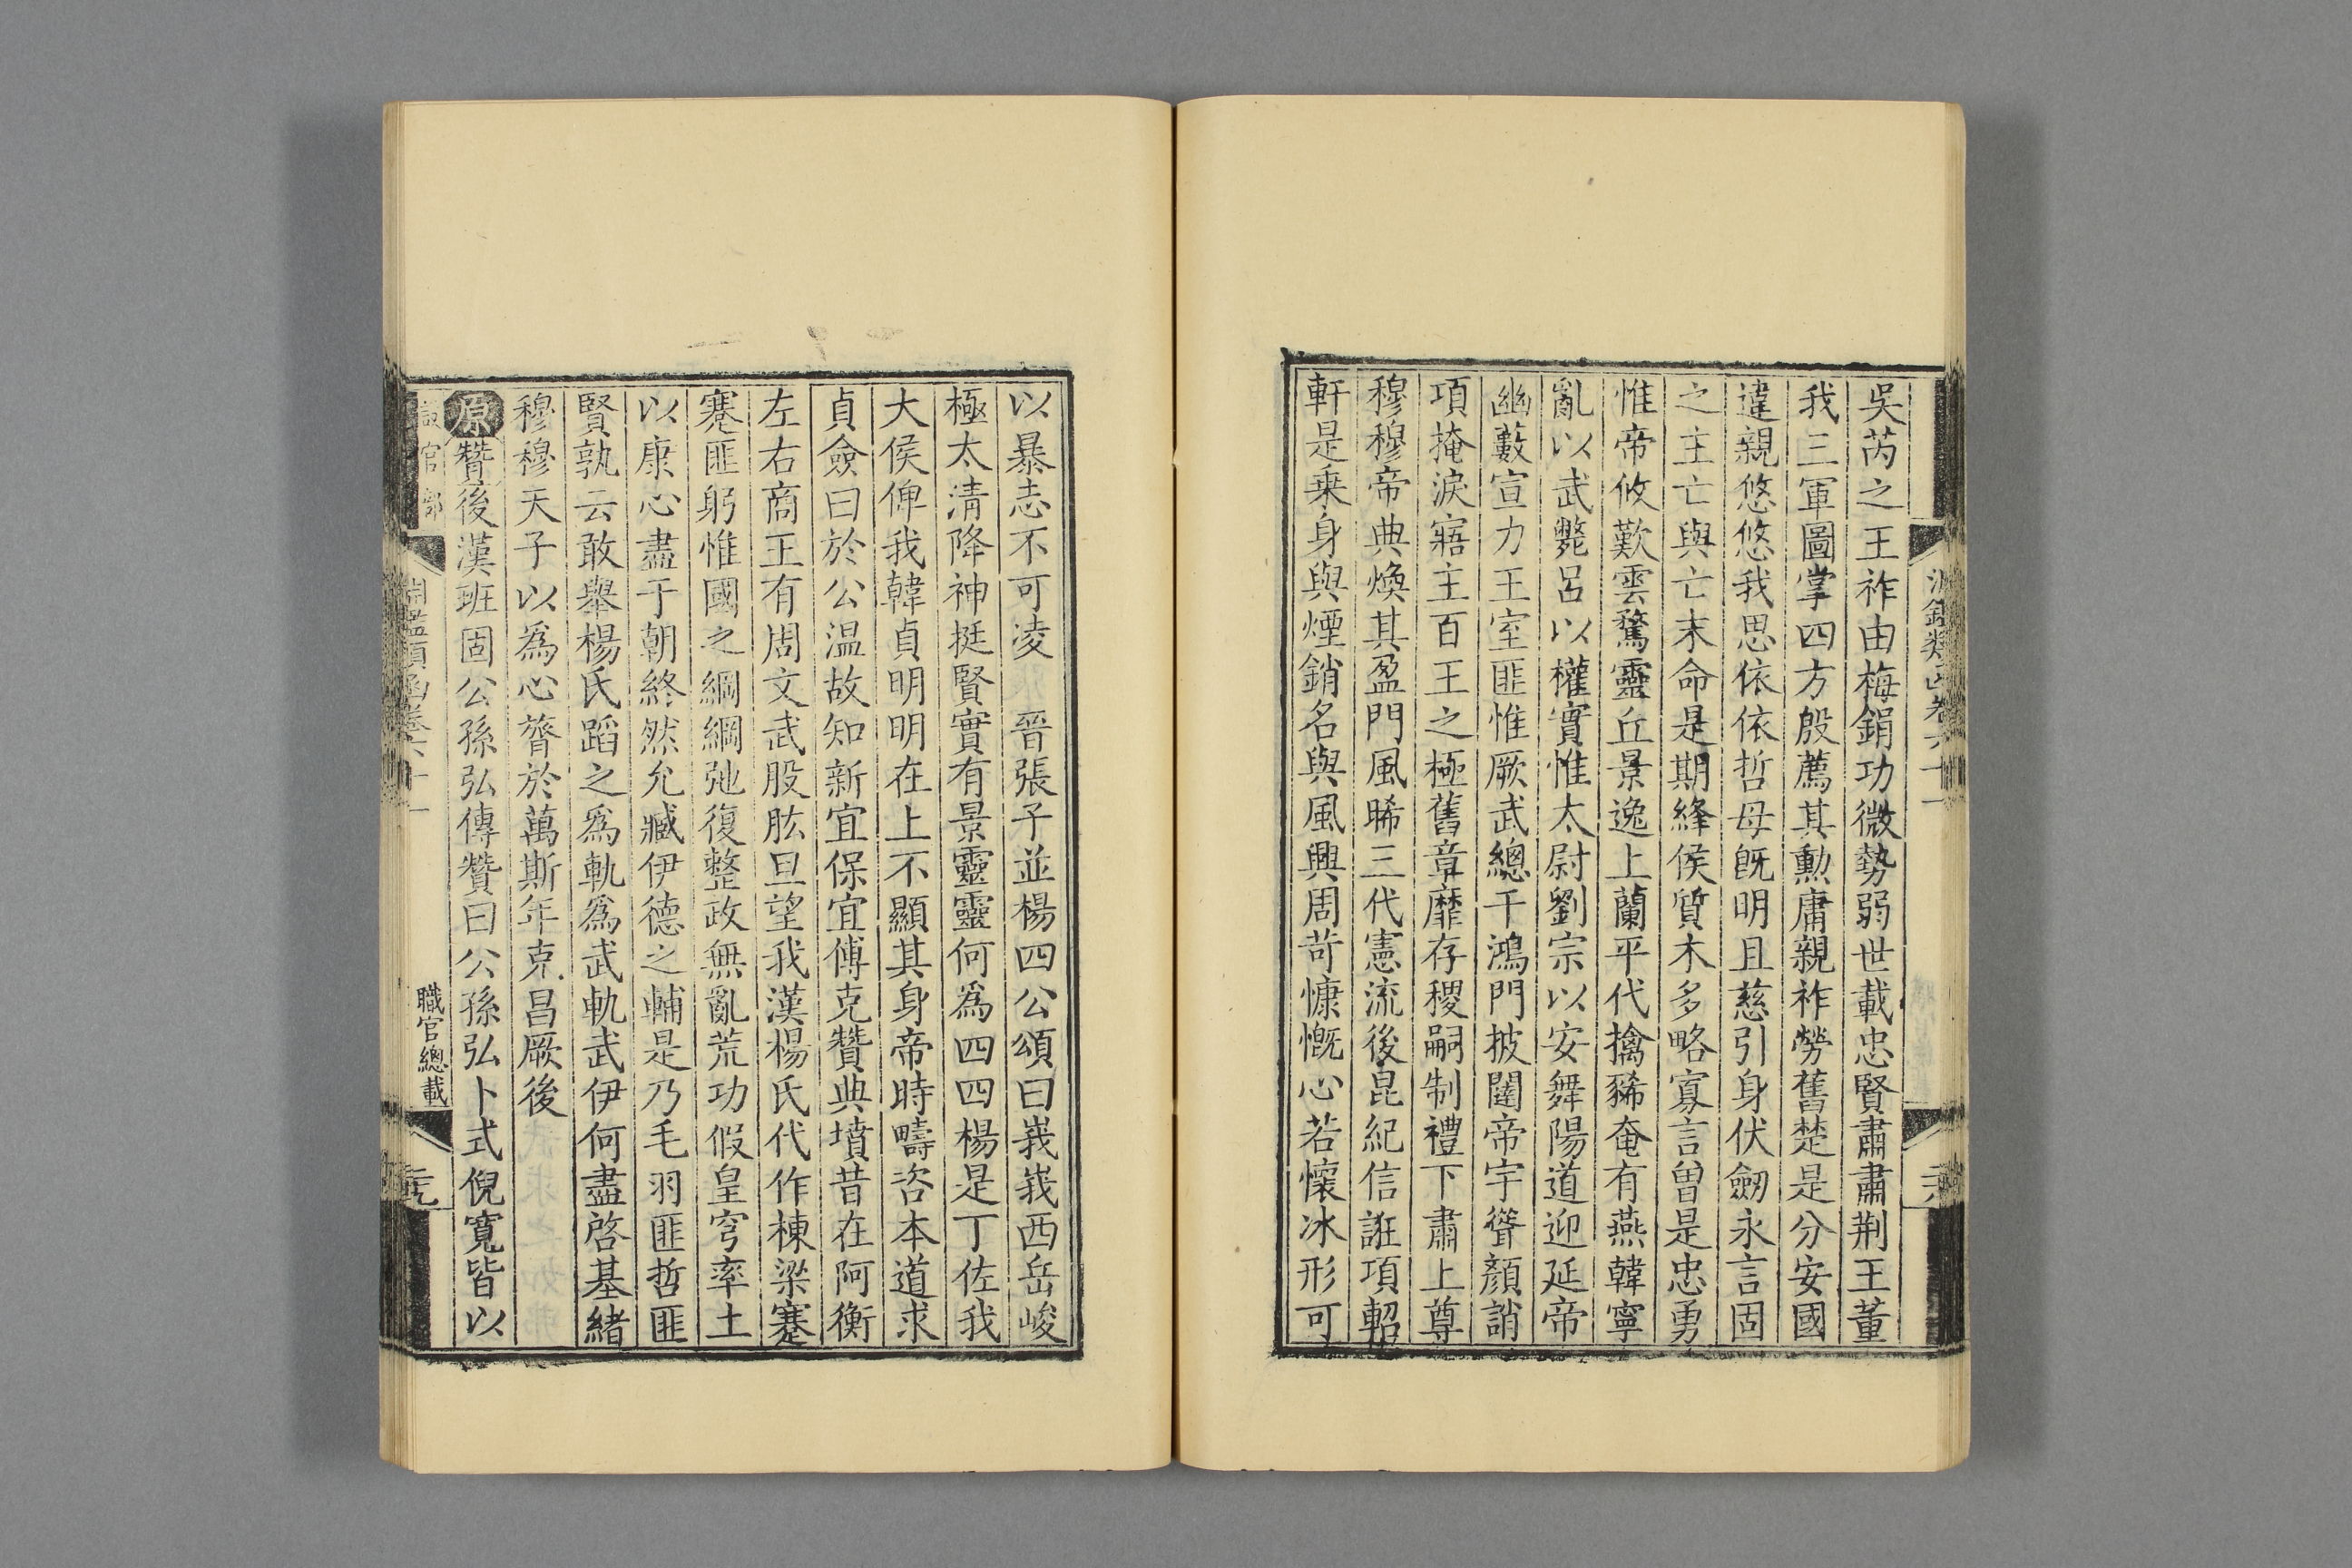 吳芮之王祚由梅鋗功微勢弱世載忠賢肅肅荆王董
我三軍圖掌四方殷薦其勳庸親祚勞舊楚是分安國
違親悠悠我思依依哲母旣明且慈引身伏劒永言固
之主亡與亡末命是期絳侯質木多略寡言曾是忠勇
惟帝攸歎雲騖靈丘景逸上蘭平代擒豨奄有燕韓寧
亂以武斃呂以權實惟太尉劉宗以安舞陽道迎延帝
幽藪宣力王室匪惟厥武總干鴻門披闥帝宇聳顏誚
項掩淚寤主百王之極舊章靡存稷嗣制禮下肅上尊
穆穆帝典煥其盈門風晞三代憲流後昆紀信誑項軺
軒是乗身與煙銷名與風興周苛慷慨心若懷冰形可
以暴志不可凌 晉張子並楊四公頌曰峩峩西岳峻
極太淸降神挺賢實有景靈靈何爲四四楊是丁佐我
大侯俾我韓貞明明在上不顯其身帝時疇咨本道求
貞僉曰於公温故知新宜保宜傅克贊典墳昔在阿衡
左右商王有周文武股肱旦望我漢楊氏代作棟梁蹇
蹇匪躬惟國之綱綱弛復整政無亂荒功假皇穹率土
以康心盡于朝終然允臧伊德之輔是乃毛羽匪哲匪
賢孰云敢舉楊氏蹈之爲軌爲武軌武伊何盡啓基緒
穆穆天子以爲心膂於萬斯年克昌厥後
原贊後漢班固公孫弘傳贊曰公孫弘卜式倪寬皆以
設官部
淵鑑類函卷六十一
職官總載